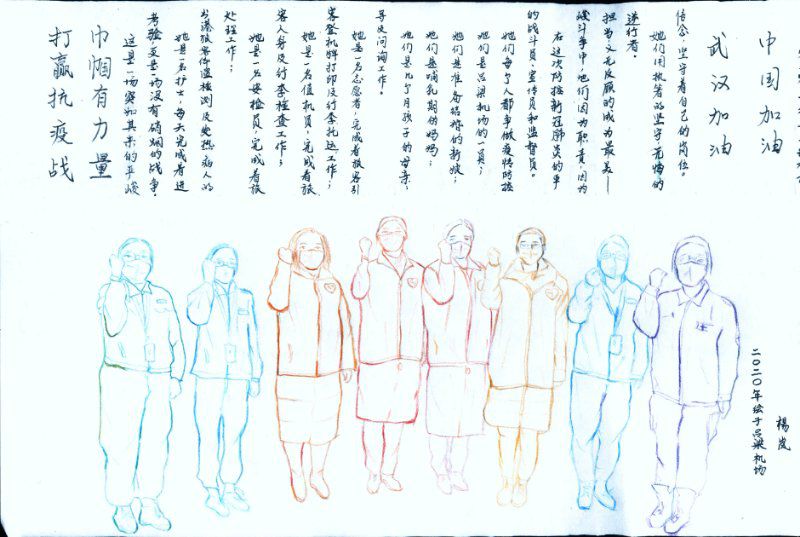 打赢抗疫战
巾帼有力量
这是一场突如其来的严峻
考验，更是一场没有硝烟的战争。
她是一名护士，每天完成着进
出港旅客体温检测及发热病人的
处理工作；
她是一名安检员，完成着旅
客人身及行李检查工作；
她是一名值机员，完成着旅
客登机牌打印及行李托运工作；
她是一名志愿者，完成着旅客引
导及问询工作。
她们是几个月孩子的母亲；
她们是哺乳期的妈妈；
她们是准备结婚的新娘；
她们是吕梁机场的一员；
她们每个人都争做疫情防控
的战斗员，宣传员和监督员。
在这次防控新冠肺炎的
斗争中，他们因为职责，因为
担当义无反顾的成为最美——
逆行者。
她们用执着的坚守，无悔的
信念，坚守着自己的岗位。
武汉加油
中国加油
二〇二〇年绘于吕梁机场
杨岚